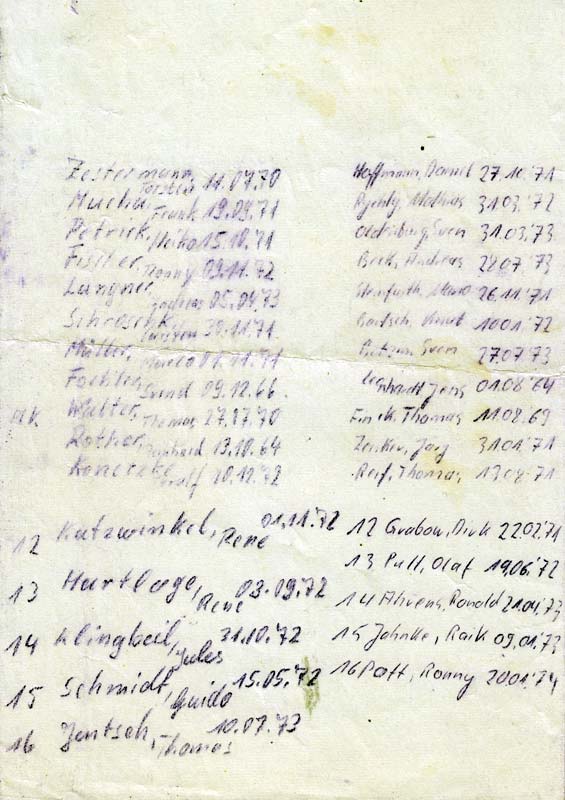 Zestermann, Torsten 11.07.70
Mucha, Frank 19.09.71
Petrick, Heiko 15.10.71
Fischer, Ronny 09.11.72
Langner, 05.04.73
Schroschk, 30.11.71
Müller, Marco 01.11.71
09.12.66
Walter, Thomas 27.17.70
Rother, Raphaid 13.10.64
Konetzke, Ralf 20.12.72
12 Katzwinkel, René 01.11.72
13 Hartlage, René 03.09.72
14 Klingbeil, Jules 31.10.72
15 Schmidt, Guido 15.05.72
16 Jentsch, Thomas 10.07.73
Hoffmann, Daniel 27.10.71
Mathias 31.03.72
Oldenburg, Sven 31.03.73
Andreas 28.07.73
26.11.71
Bartsch, Knut 10.01.72
Sven 27.07.73
Leonhardt, Jens 01.08.64
Finck, Thomas 11.08.69
Zenker, Jörg 31.01.71
Reif, Thomas, 13.08.71
12 Grabow, Dirk 22.02.71
13 Pull, Olaf 19.06.72
14 Ahrens, Ronald 21.04.73
15 Jahnke, Raik 09.01.73
16 Patt, Ronny 20.01.74